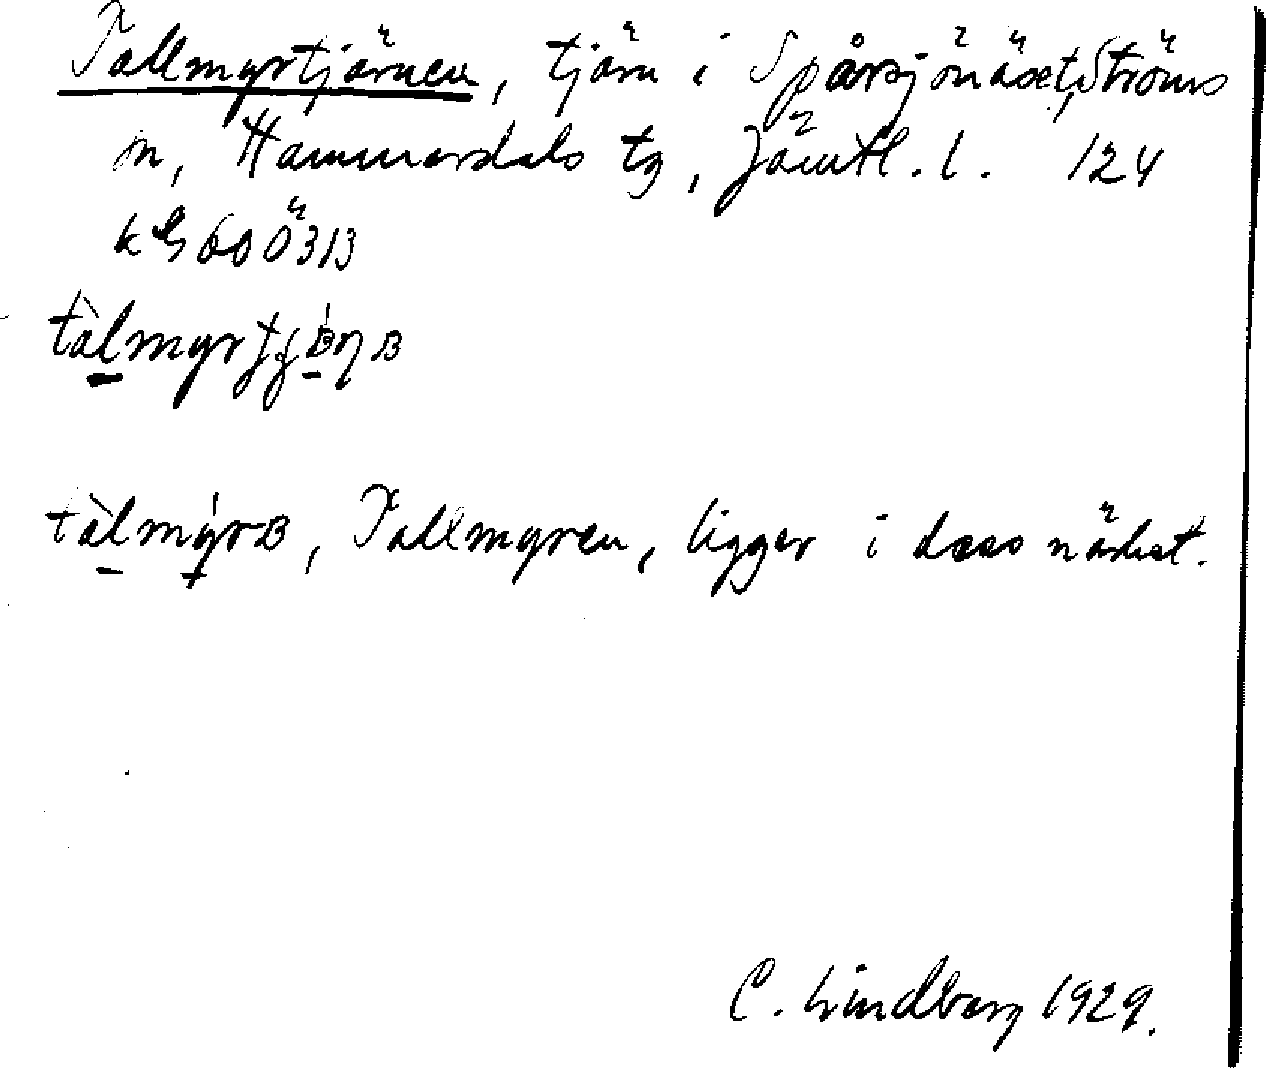 Tallmyrtjärnen, tjärn i Spårsjönäset, Ströms
sn, Hammerdals tg, Jämtl. l. 124
tàlmyrtjɐ́ŋɐ
tàlmýrɐ, Tallmyren, ligger i dess närhet.
C. Lindberg 1929.